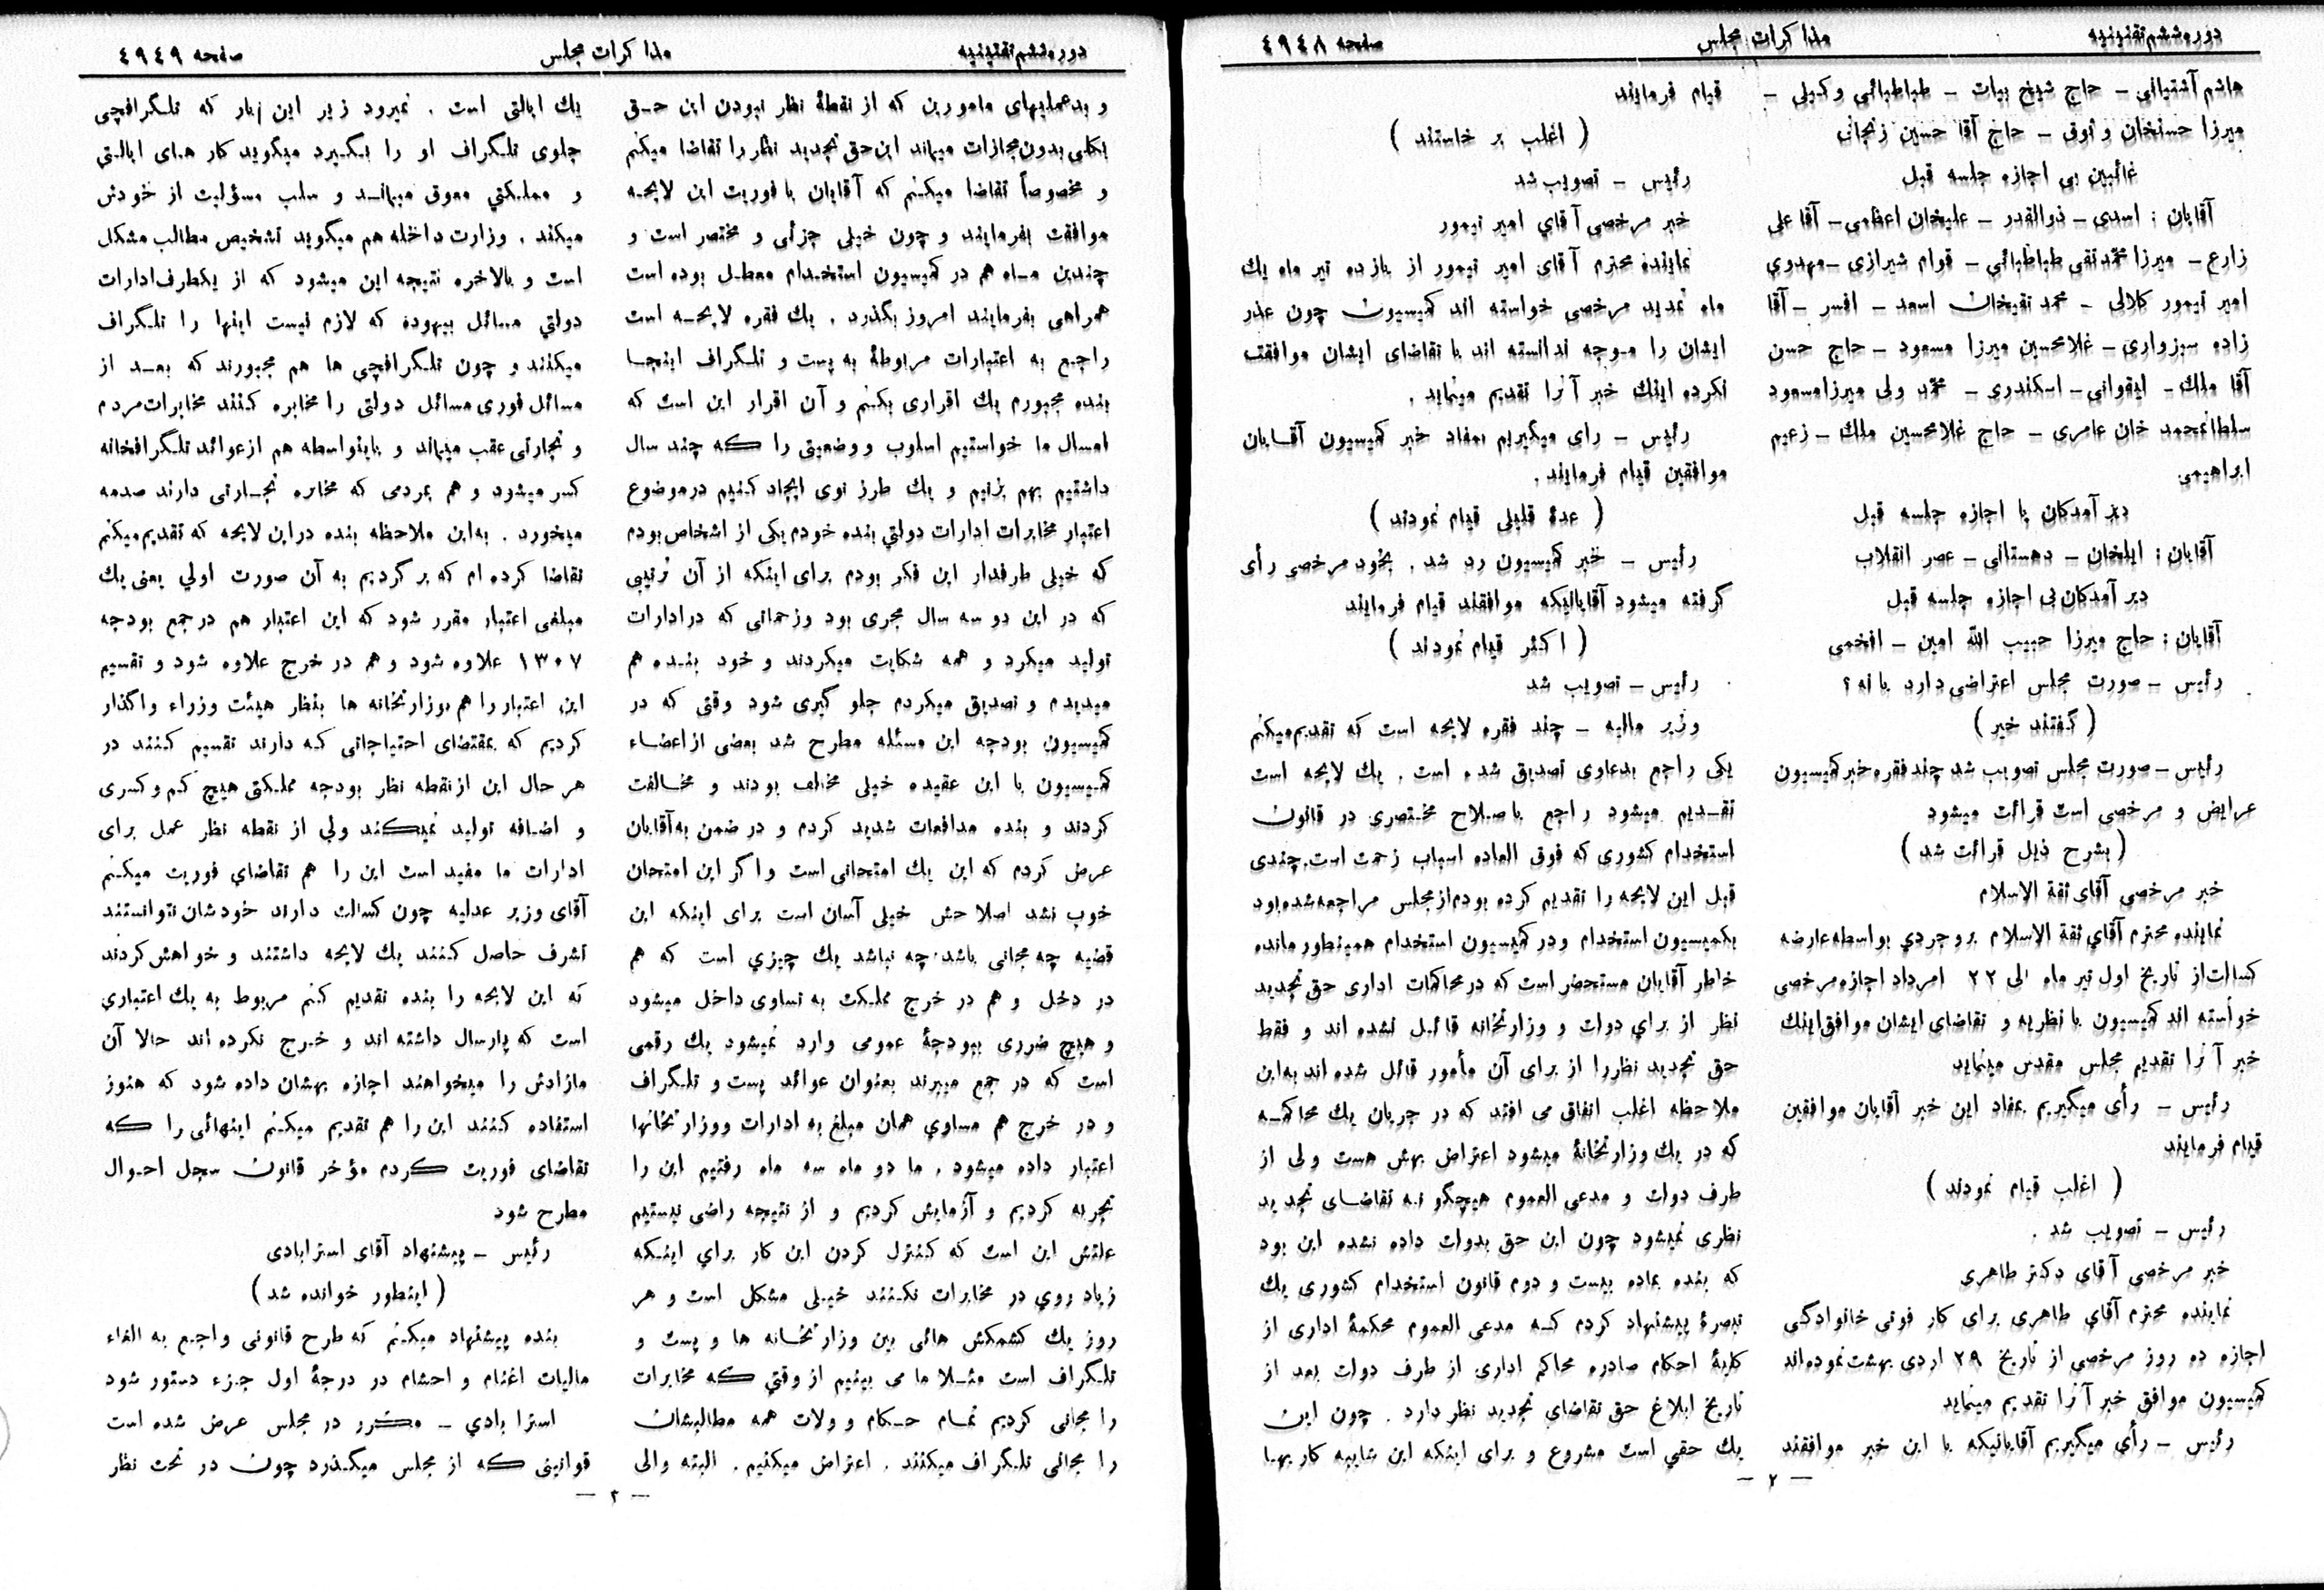 دوره ششم تقنینیه
مذاکرات مجلس
صفحه ٤٩٤٨
هاشم آشتیانی – حاج شیخ بیات – طباطبائی وکیلی –
میرزا حسنخان وثوق – حاج آقا حسین زنجانی
غائبین بی اجازه جلسه قبل
آقایان : اسدی – ذوالقدر – علیخان اعظمی – آقا علی
زارع – میرزا محمد تقی طباطبائی – قوام شیرازی – مهدوی
امیر تیمور کلالی – محمد تقیخان اسعد – افسر – آقا
زاده سبزواری – غلامحسین میرزا مسعود – حاج حسن
آقا ملك – ایقوانی – اسکندری – محمد ولی میرزا مسعود
سلطانمحمد خان عامری – حاج غلامحسین ملك – زعیم
ابراهیمی
دیر آمدکان با اجازه جلسه قبل
آقایان : ایلخان – دهستانی – عصر انقلاب
دیر آمدکان بی اجازه جلسه قبل
آقایان : حاج میرزا حبیب الله امین – افخمی
رئیس – صورت مجلس اعتراضی دارد یا نه ؟
( گفتند خیر )
رئیس – صورت مجلس تصویب شد چند فقره خبر کمیسیون
عرایض و مرخصی است قرائت میشود
( بشرح ذیل قرائت شد )
خبر مرخصی آقای ثقة الاسلام
نماینده محترم آقای ثقة الاسلام بروجردی بواسطه عارضه
کسالت از تاریخ اول تیر ماه الی ٢٢ امرداد اجازه مرخصی
خواسته اند کمیسیون با نظریه و تقاضای ایشان موافق اینك
خبر آنرا تقدیم مجلس مقدس مینماید
رئیس – رأی میگیریم بمفاد این خبر آقایان موافقین
قیام فرمایند
( اغلب قیام نمودند )
رئیس – تصویب شد .
خبر مرخصی آقای دکتر طاهری
نماینده محترم آقای طاهری برای کار فوتی خانوادگی
اجازه ده روز مرخصی از تاریخ ٢٩ اردی بهشت نموده اند
کمیسیون موافق خبر آنرا تقدیم مینماید
رئیس – رأی میگیریم آقایانیکه با این خبر موافقند
قیام فرمایند
( اغلب بر خاستند )
رئیس – تصویب شد
خبر مرخصی آقای امیر تیمور
نماینده محترم آقای امیر تیمور از یازده تیر ماه یك
ماه تمدید مرخصی خواسته اند کمیسیون چون عذر
ایشان را موجه ندانسته اند با تقاضای ایشان موافقت
نکرده اینك خبر آنرا تقدیم مینماید .
رئیس – رای میگیریم بمفاد خبر کمیسیون آقایان
موافقین قیام فرمایند .
( عدهٔ قلیلی قیام نمودند )
رئیس – خبر کمیسیون رد شد . بخود مرخصی رأی
گرفته میشود آقایانیکه موافقند قیام فرمایند
( اکثر قیام نمودند )
رئیس – تصویب شد
وزیر مالیه – چند فقره لایحه است که تقدیم میکنم
یکی راجع بدعاوی تصدیق شده است . یك لایحه است
تقدیم میشود راجع باصلاح مختصری در قانون
استخدام کشوری که فوق العاده اسباب زحمت است . چندی
قبل این لایحه را تقدیم کرده بودم از مجلس مراجعه شده بود
بکمیسیون استخدام و در کمیسیون استخدام همینطور مانده
خاطر آقایان مستحضر است که در محاکمات اداری حق تجدید
نظر از برای دولت و وزارتخانه قائل نشده اند و فقط
حق تجدید نظر را از برای آن مأمور قائل شده اند به این
ملاحظه اغلب اتفاق می افتد که در جریان یك محاکمه
که در یك وزارتخانهٔ میشود اعتراض بهش هست ولی از
طرف دولت و مدعی العموم هیچگونه تقاضای تجدید
نظری نمیشود چون این حق بدولت داده نشده این بود
که بنده بماده بیست و دوم قانون استخدام کشوری یك
تبصرهٔ پیشنهاد کردم که مدعی العموم محکمهٔ اداری از
کلیهٔ احکام صادره محاکم اداری از طرف دولت بعد از
تاریخ ابلاغ حق تقاضای تجدید نظر دارد . چون این
یك حقی است مشروع و برای اینکه این شاییه کاریها
– ٢ –
دوره ششم تقنینیه
مذاکرات مجلس
صفحه ٤٩٤٩
و بدعملیهای مامورین که از نقطهٔ نظر نبودن این حق
بکلی بدون مجازات میماند این حق تجدید نظر را تقاضا میکنم
و مخصوصاً تقاضا میکنم که آقایان با فوریت این لایحه
موافقت بفرمایند و چون خیلی جزئی و مختصر است و
چندین ماه هم در کمیسیون استخدام معطل بوده است
همراهی بفرمایند امروز بگذرد . یك فقره لایحه است
راجع به اعتبارات مربوطهٔ به پست و تلگراف اینجا
بنده مجبورم یك اقراری بکنم و آن اقرار این است که
امسال ما خواستیم اسلوب و وضعیتی را که چند سال
داشتیم بهم بزنیم و یك طرز نوی ایجاد کنیم در موضوع
اعتبار مخابرات ادارات دولتی بنده خودم یکی از اشخاص بودم
که خیلی طرفدار این فکر بودم برای اینکه از آن ترتیبی
که در این دو سه سال مجری بود و زحماتی که در ادارات
تولید میکرد و همه شکایت میکردند و خود بنده هم
میدیدم و تصدیق میکردم جلو گیری شود وقتی که در
کمیسیون بودجه این مسئله مطرح شد بعضی از اعضاء
کمیسیون با این عقیده خیلی مخالف بودند و مخالفت
کردند و بنده مدافعات شدید کردم و در ضمن به آقایان
عرض کردم که این یك امتحانی است و اگر این امتحان
خوب نشد اصلاحش خیلی آسان است برای اینکه این
قضیه چه مجانی باشد چه نباشد یك چیزی است که هم
در دخل و هم در خرج مملکت به تساوی داخل میشود
و هیچ ضرری ببودجهٔ عمومی وارد نمیشود یك رقمی
است که در جمع میبرند بعنوان عوائد پست و تلگراف
و در خرج هم مساوی همان مبلغ به ادارات و وزارتخانها
اعتبار داده میشود . ما دو ماه سه ماه رفتیم این را
تجربه کردیم و آزمایش کردیم و از نتیجه راضی نیستیم
علتش این است که کنترل کردن این کار برای اینکه
زیاد روی در مخابرات نکنند خیلی مشکل است و هر
روز یك کشمکش هائی بین وزارتخانه ها و پست و
تلگراف است مثلا ما می بینیم از وقتی که مخابرات
را مجانی کردیم تمام حکام و ولات همه مطالبشان
را مجانی تلگراف میکنند . اعتراض میکنیم . البته والی
یك ایالتی است . نمیرود زیر این بار که تلگرافچی
جلوی تلگراف او را بگیرد میگوید کار های ایالتی
و مملکتی معوق میماند و سلب مسؤلیت از خودش
میکند . وزارت داخله هم میگوید تشخیص مطالب مشکل
است و بالاخره نتیجه این میشود که از یکطرف ادارات
دولتی مسائل بیهوده که لازم نیست اینها را تلگراف
میکنند و چون تلگرافچی ها هم مجبورند که بعد از
مسائل فوری مسائل دولتی را مخابره کنند مخابرات مردم
و تجارتی عقب میماند و باینواسطه هم از عوائد تلگرافخانه
کسر میشود و هم بمردمی که مخابره تجارتی دارند صدمه
میخورد . به این ملاحظه بنده در این لایحه که تقدیم میکنم
تقاضا کرده ام که بر گردیم به آن صورت اولی یعنی یك
مبلغی اعتبار مقرر شود که این اعتبار هم در جمع بودجه
١٣٠٧ علاوه شود و هم در خرج علاوه شود و تقسیم
این اعتبار را هم بوزارتخانه ها بنظر هیئت وزراء واگذار
کردیم که بمقتضای احتیاجاتی که دارند تقسیم کنند در
هر حال این از نقطه نظر بودجه مملکتی هیچ کم و کسری
و اضافه تولید نمیکند ولی از نقطه نظر عمل برای
ادارات ما مفید است این را هم تقاضای فوریت میکنم
آقای وزیر عدلیه چون کسالت دارند خودشان نتوانستند
تشرف حاصل کنند یك لایحه داشتند و خواهش کردند
که این لایحه را بنده تقدیم کنم مربوط به یك اعتباری
است که پارسال داشته اند و خرج نکرده اند حالا آن
مازادش را میخواهند اجازه بهشان داده شود که هنوز
استفاده کنند این را هم تقدیم میکنم اینهائی را که
تقاضای فوریت کردم مؤخر قانون سجل احوال
مطرح شود
رئیس – پیشنهاد آقای استرابادی
( اینطور خوانده شد )
بنده پیشنهاد میکنم که طرح قانونی راجع به الغاء
مالیات اغنام و احشام در درجهٔ اول جزء دستور شود
استرابادی – مکرر در مجلس عرض شده است
قوانینی که از مجلس میگذرد چون در تحت نظر
– ٣ –